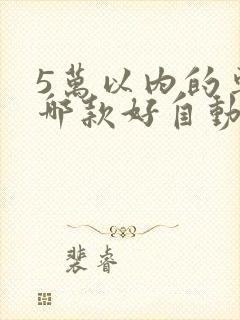 5萬以內的
哪款好自動
裴睿